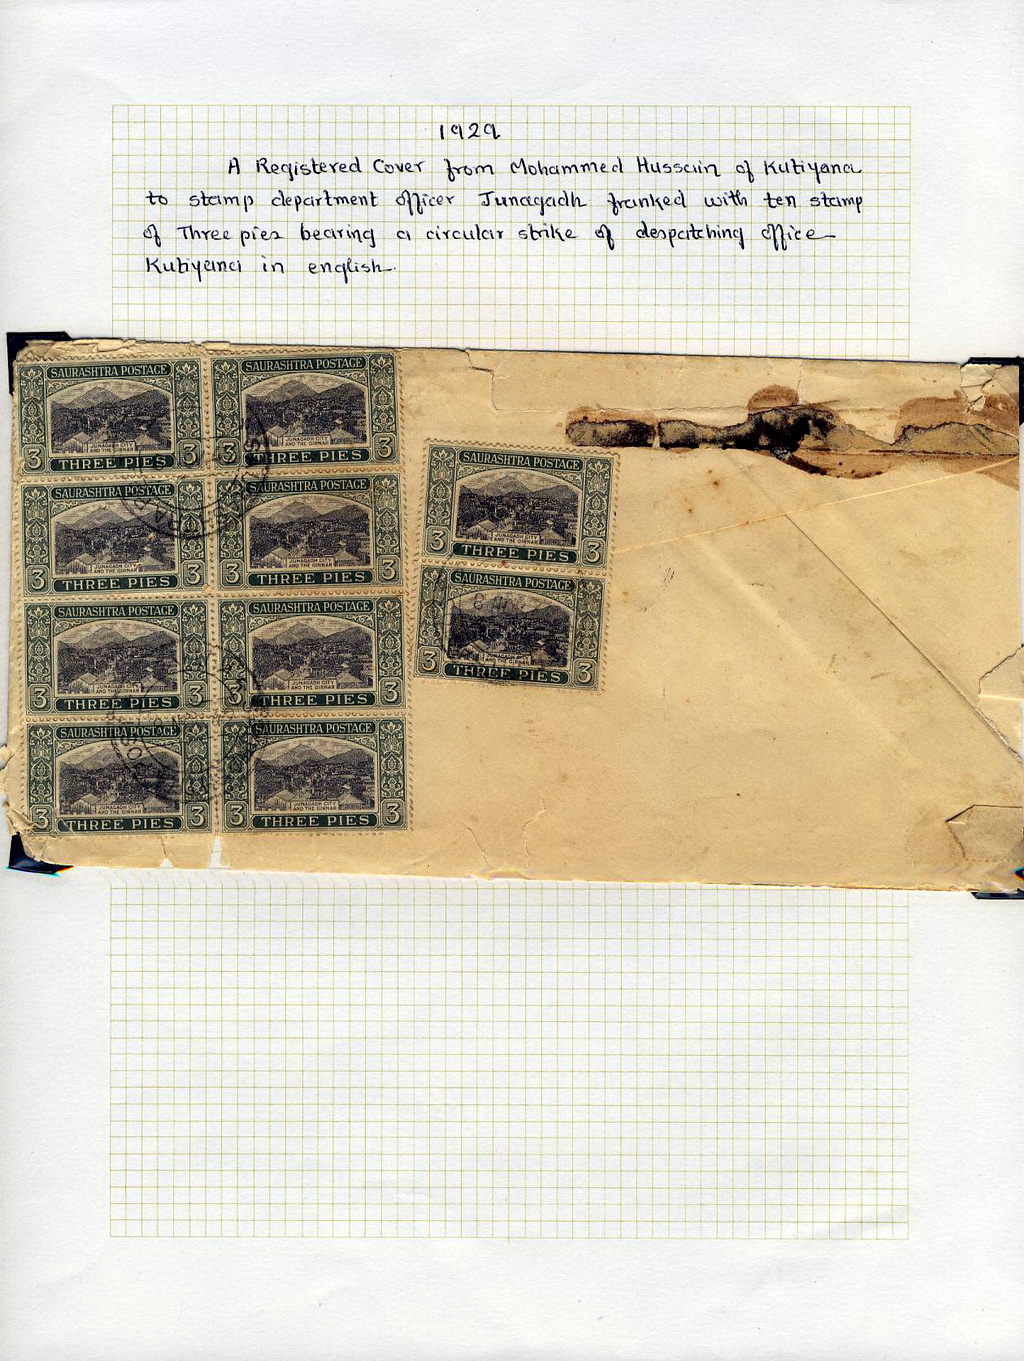 1929
A Registered Cover from Mohammed Hussain of Kutiyana
to stamp department officer Junagadh franked with ten stamp
of Three pies bearing a circular strike of despatching office
Kutiyana in english.
SAURASHTRA POSTAGE
JUNAGADH CITY
AND THE GIRNAR
3 THREE PIES 3
SAURASHTRA POSTAGE
JUNAGADH CITY
AND THE GIRNAR
3 THREE PIES 3
SAURASHTRA POSTAGE
JUNAGADH CITY
AND THE GIRNAR
3 THREE PIES 3
SAURASHTRA POSTAGE
JUNAGADH CITY
AND THE GIRNAR
3 THREE PIES 3
SAURASHTRA POSTAGE
JUNAGADH CITY
AND THE GIRNAR
3 THREE PIES 3
SAURASHTRA POSTAGE
JUNAGADH CITY
AND THE GIRNAR
3 THREE PIES 3
SAURASHTRA POSTAGE
JUNAGADH CITY
AND THE GIRNAR
3 THREE PIES 3
SAURASHTRA POSTAGE
JUNAGADH CITY
AND THE GIRNAR
3 THREE PIES 3
SAURASHTRA POSTAGE
JUNAGADH CITY
AND THE GIRNAR
3 THREE PIES 3
SAURASHTRA POSTAGE
AND THE GIRNAR
3 THREE PIES 3